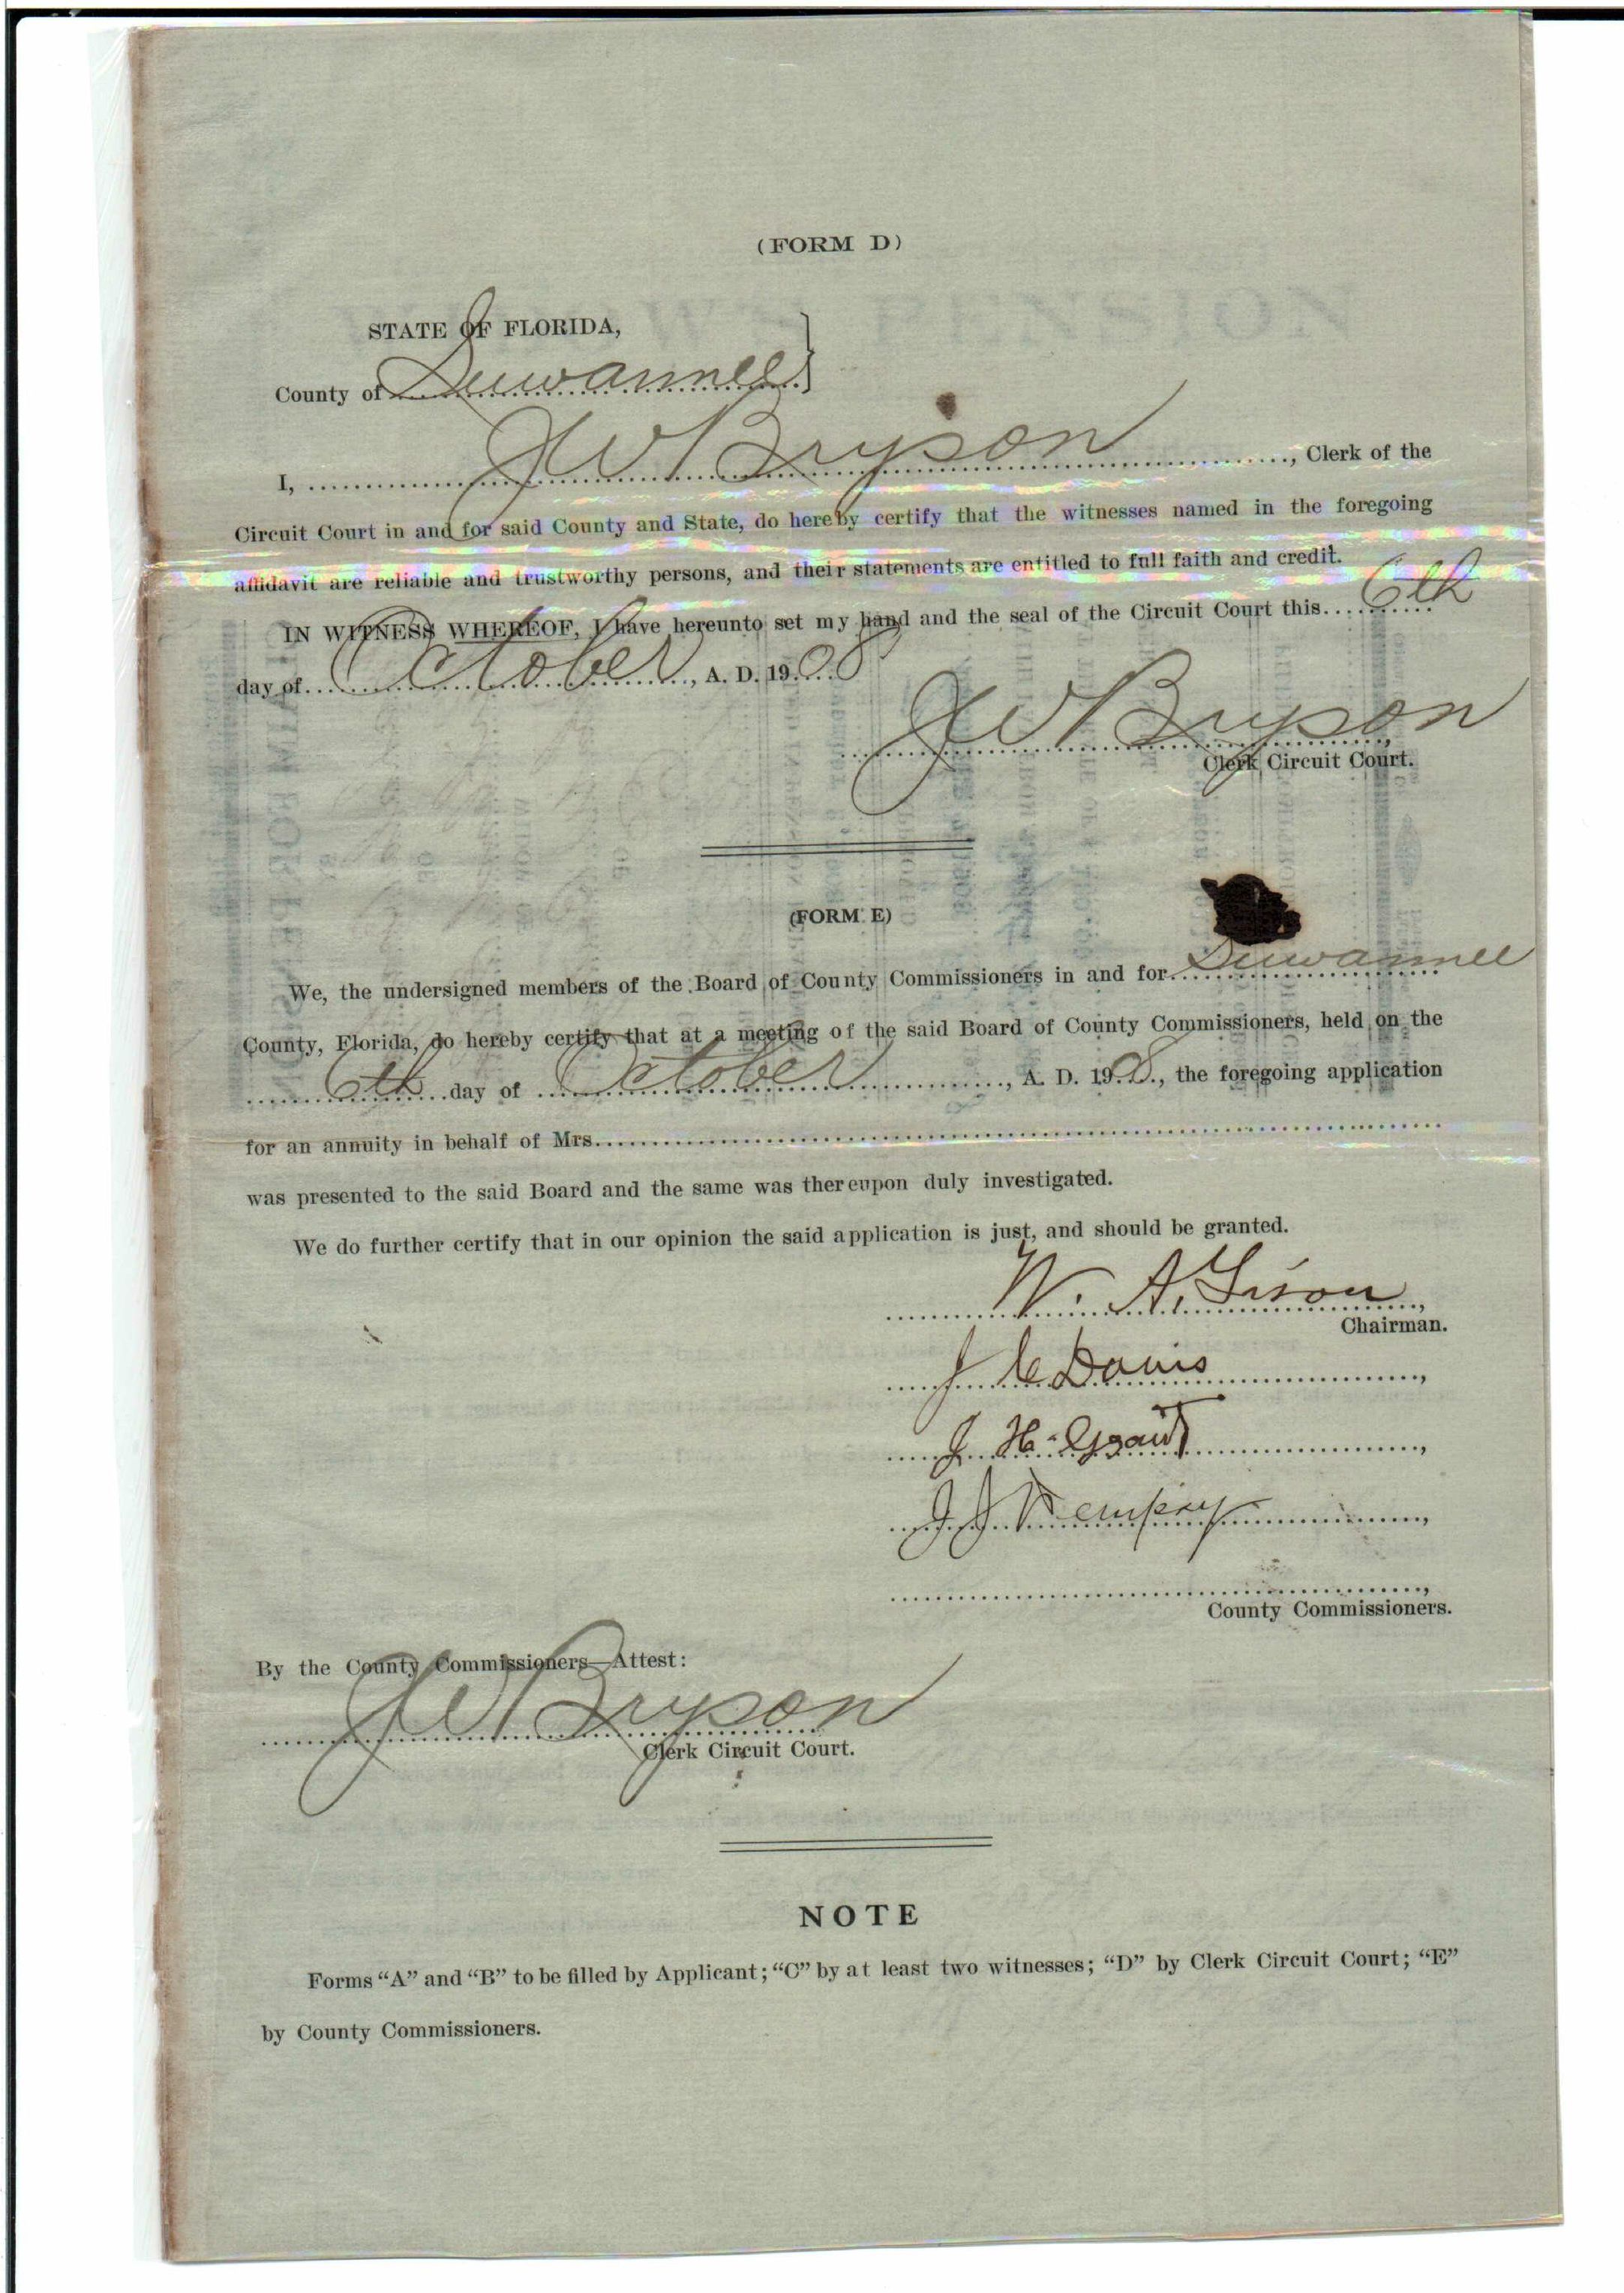 (FORM D)
STATE OF FLORIDA,
County of Suwannee
I, J W Bryson, Clerk of the
Circuit Court in and for said County and State, do hereby certify that the witnesses named in the foregoing
affidavit are reliable and trustworthy persons, and their statements are entitled to full faith and credit.
IN WITNESS WHEREOF, I have hereunto set my hand and the seal of the Circuit Court this 6th
day of October, A. D. 1908
J W Bryson
Clerk Circuit Court.
(FORM E)
We, the undersigned members of the Board of County Commissioners in and for Suwannee
County, Florida, do hereby certify that at a meeting of the said Board of County Commissioners, held on the
6th day of October, A. D. 1908, the foregoing application
for an annuity in behalf of Mrs.
was presented to the said Board and the same was thereupon duly investigated.
We do further certify that in our opinion the said application is just, and should be granted.
W. A.
Chairman.
J C Davis
J. H. Grant
J J
County Commissioners.
By the County Commissioners—Attest:
J W Bryson
Clerk Circuit Court.
NOTE
Forms “A” and “B” to be filled by Applicant; “C” by at least two witnesses; “D” by Clerk Circuit Court; “E”
by County Commissioners.